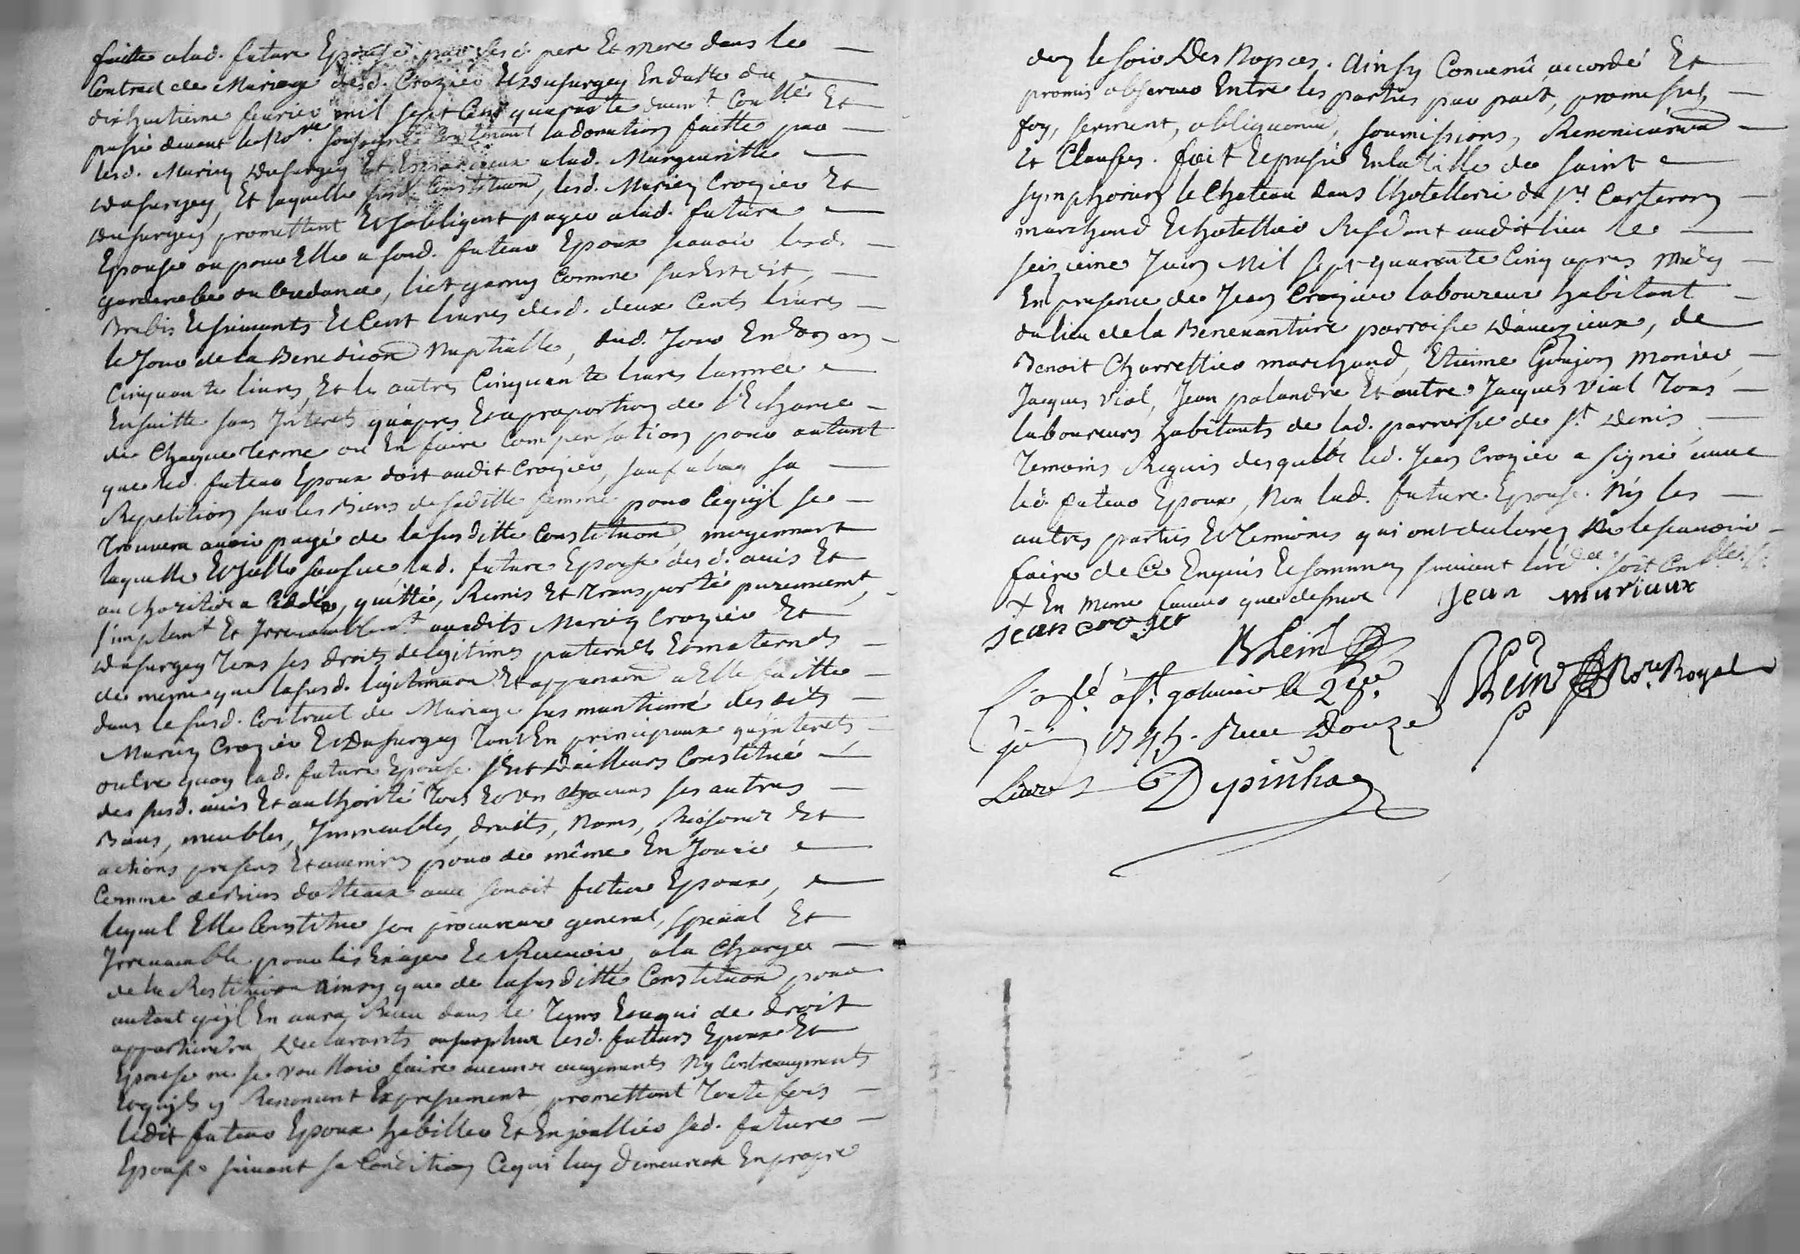 faitte alad. future Epouse par sesd. pere Et mere dans le
Contract de Mariage desd. Crozier Et Dusurgey En datte du
dixhuitieme fevrier mil sept Cent quarante duem.t Conllé Et
passé devant le No.re soussigné Contenant la donation faitte par
lesd. Mariez Dusurgey alad. Margueritte
Dusurgey, Et laquelle susd. Constitution, lesd. Mariez Crozier Et
Dusurgey promettent Et sobligent payer alad. future
Epouse ou pour Elle a sond. futeur Epoux scavoir lesd.
garderobe ou Credance, lict garny Comme susd. Est dit,
Brebis Et suivants Et Cent livres desd. deux Cents livres
le Jour de la Benediction Nuptialle, dud. Jour En un an
Cinquante livres, Et les autres Cinquante livres lannée
Ensuitte sans Interets qu'apres Et a proportion de l'Echance
de Chaque terme ou En faire Compensation pour autant
que led. futeur Epoux doit audit Crozier, sauf aluy sa
Repetition sur les Biens de saditte femme pour Cequ'il se
trouvera avoir payé de la susditte Constitution, moyennant
laquelle Icelle susdite lad. future Epouse desd. avis Et
authorité a Cédé, quitté, Remis Et transporté purement,
simplem.t Et Irrevocablem.t audits Mariez Crozier Et
Dusurgey tous ses droits de legitimes paternels Et maternels
de meme que lasusd. legitimaire Et appenans a Elle faitte
dans le susd. Contract de Mariage sus mantioné des dits
Mariez Crozier Et Dusurgey tant En principaux qu'interets
outre quoy lad. future Epouse s'est d'ailleurs Constitué
des susd. avis Et authorité tous Et un chacuns ses autres
Biens, meubles, Immeubles, droits, Noms, Raisons Et
actions presens Et avenirs pour de même En Jouir
Comme de Biens dotteaux avec sondit futeur Epoux,
lequel Elle Constitue son procureur general, special Et
Irrevocable pour les Exiger Et Recevoir, a la Charge
de la Restitution ainsy que de la susditte Constitution pour
autant qu'il En aura Receu dans le Tems Et a qui de droit
appartiendra, Declarants ausurplus lesd. futeurs Epoux Et
Epouse ne se vouloir faire aucuns augments Ny Contreaugments
Et qu'ils y Renoncent Expressement, promettant toute fois
ledit futeur Epoux habiller Et Enjoallier sad. future
Epouse suivant sa Condition Cequi luy demeurera En propre
dez le soir Des Nopces. Ainsy Convenû accordé Et
promis observer Entre les parties par pact, promesses,
foy, serment, obligations, soumissions, Renonciations
Et Clauses. fait Et passé En la Ville de Saint
Symphorien le Chateau dans l'hotellerie de s.r Carteron
marchand Et hotellier Residant audit lieu le
seizieme Juin Mil Sept quarante Cinq apres Midy
En presence de Jean Crozier laboureur habitant
du lieu de la Benevanture parroisse d'aveizieux, de
Benoit Charrettier marchand, Etienne Goujon Monier,
Jacques Vial, Jean palandre Et autre Jacques Vial tous
laboureurs habitants de lad. parroisse de S.t Denis,
temoins Requis desquels led. Jean Crozier a signé avec
led. futeur Epoux, Non lad. future Epouse. Ny les
autres parties Et temoins qui ont declarez Ne le scavoir
faire de Ce Enquis Et sommez suivant l'ord.ce soit
+ En meme faveur que dessus Jean muriaux
Jean crozier
Klein Klein No.re Royal
Con.lé a st. galmier le 28.e
juin 1745. Receu Douze
Livres Depinhac